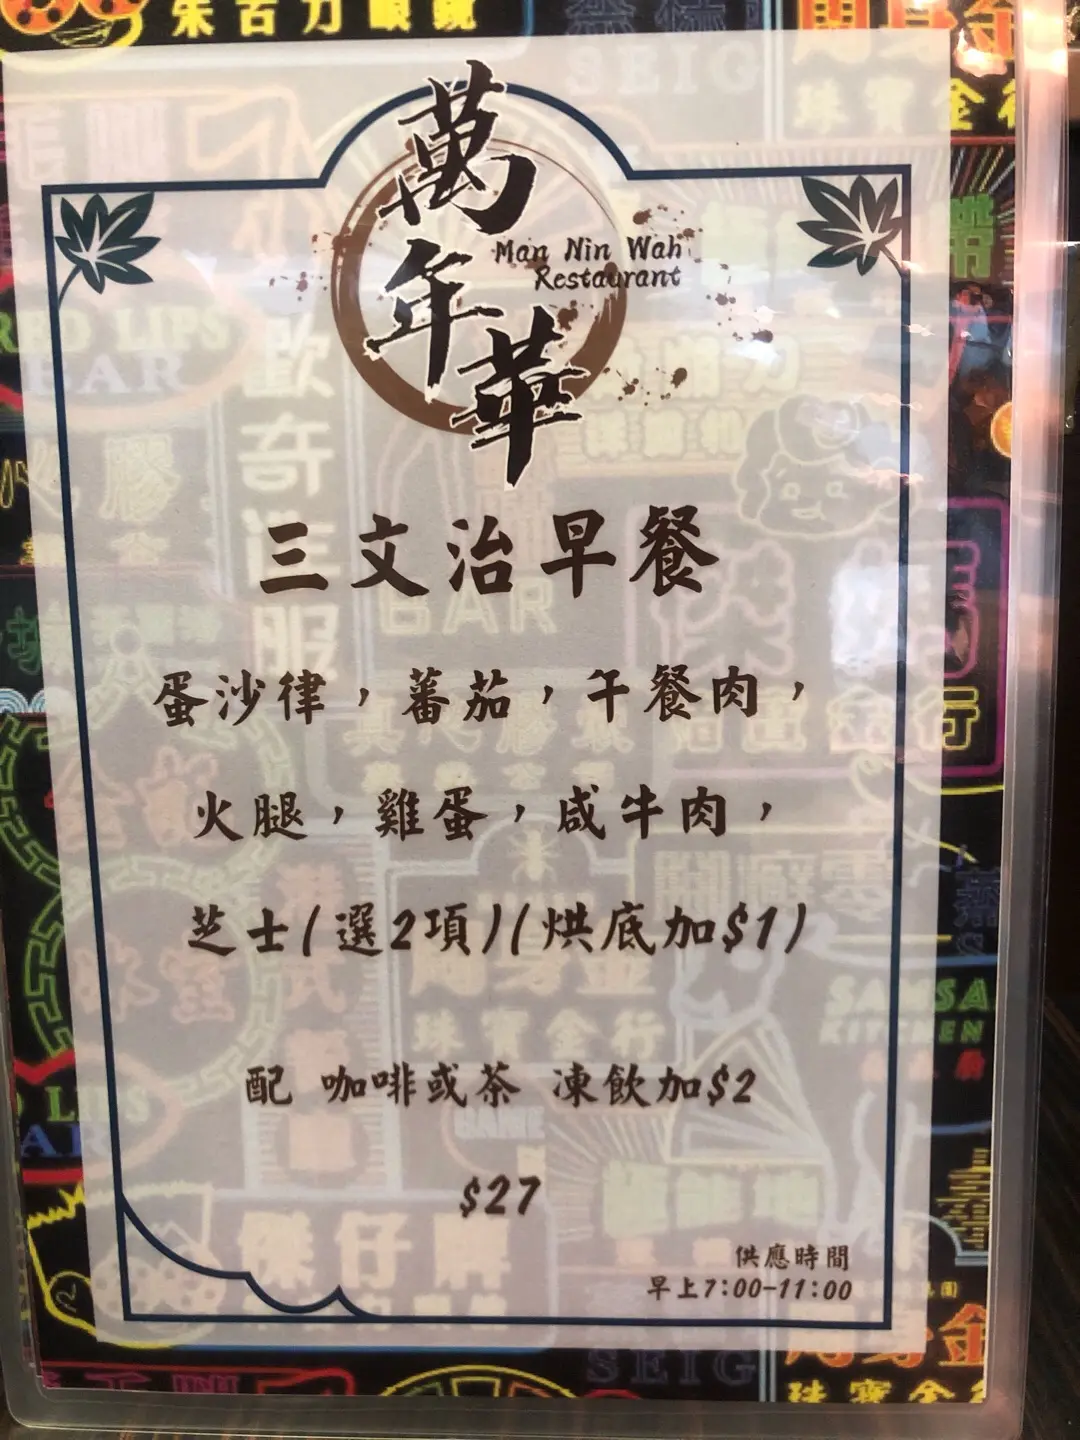 朱古力眼鏡
萬年華
Man Nin Wah
Restaurant
三文治早餐
蛋沙律，蕃茄，午餐肉，
火腿，雞蛋，咸牛肉，
芝士(選2項)(烘底加$1)
配 咖啡或茶 凍飲加$2
$27
供應時間
早上7:00-11:00